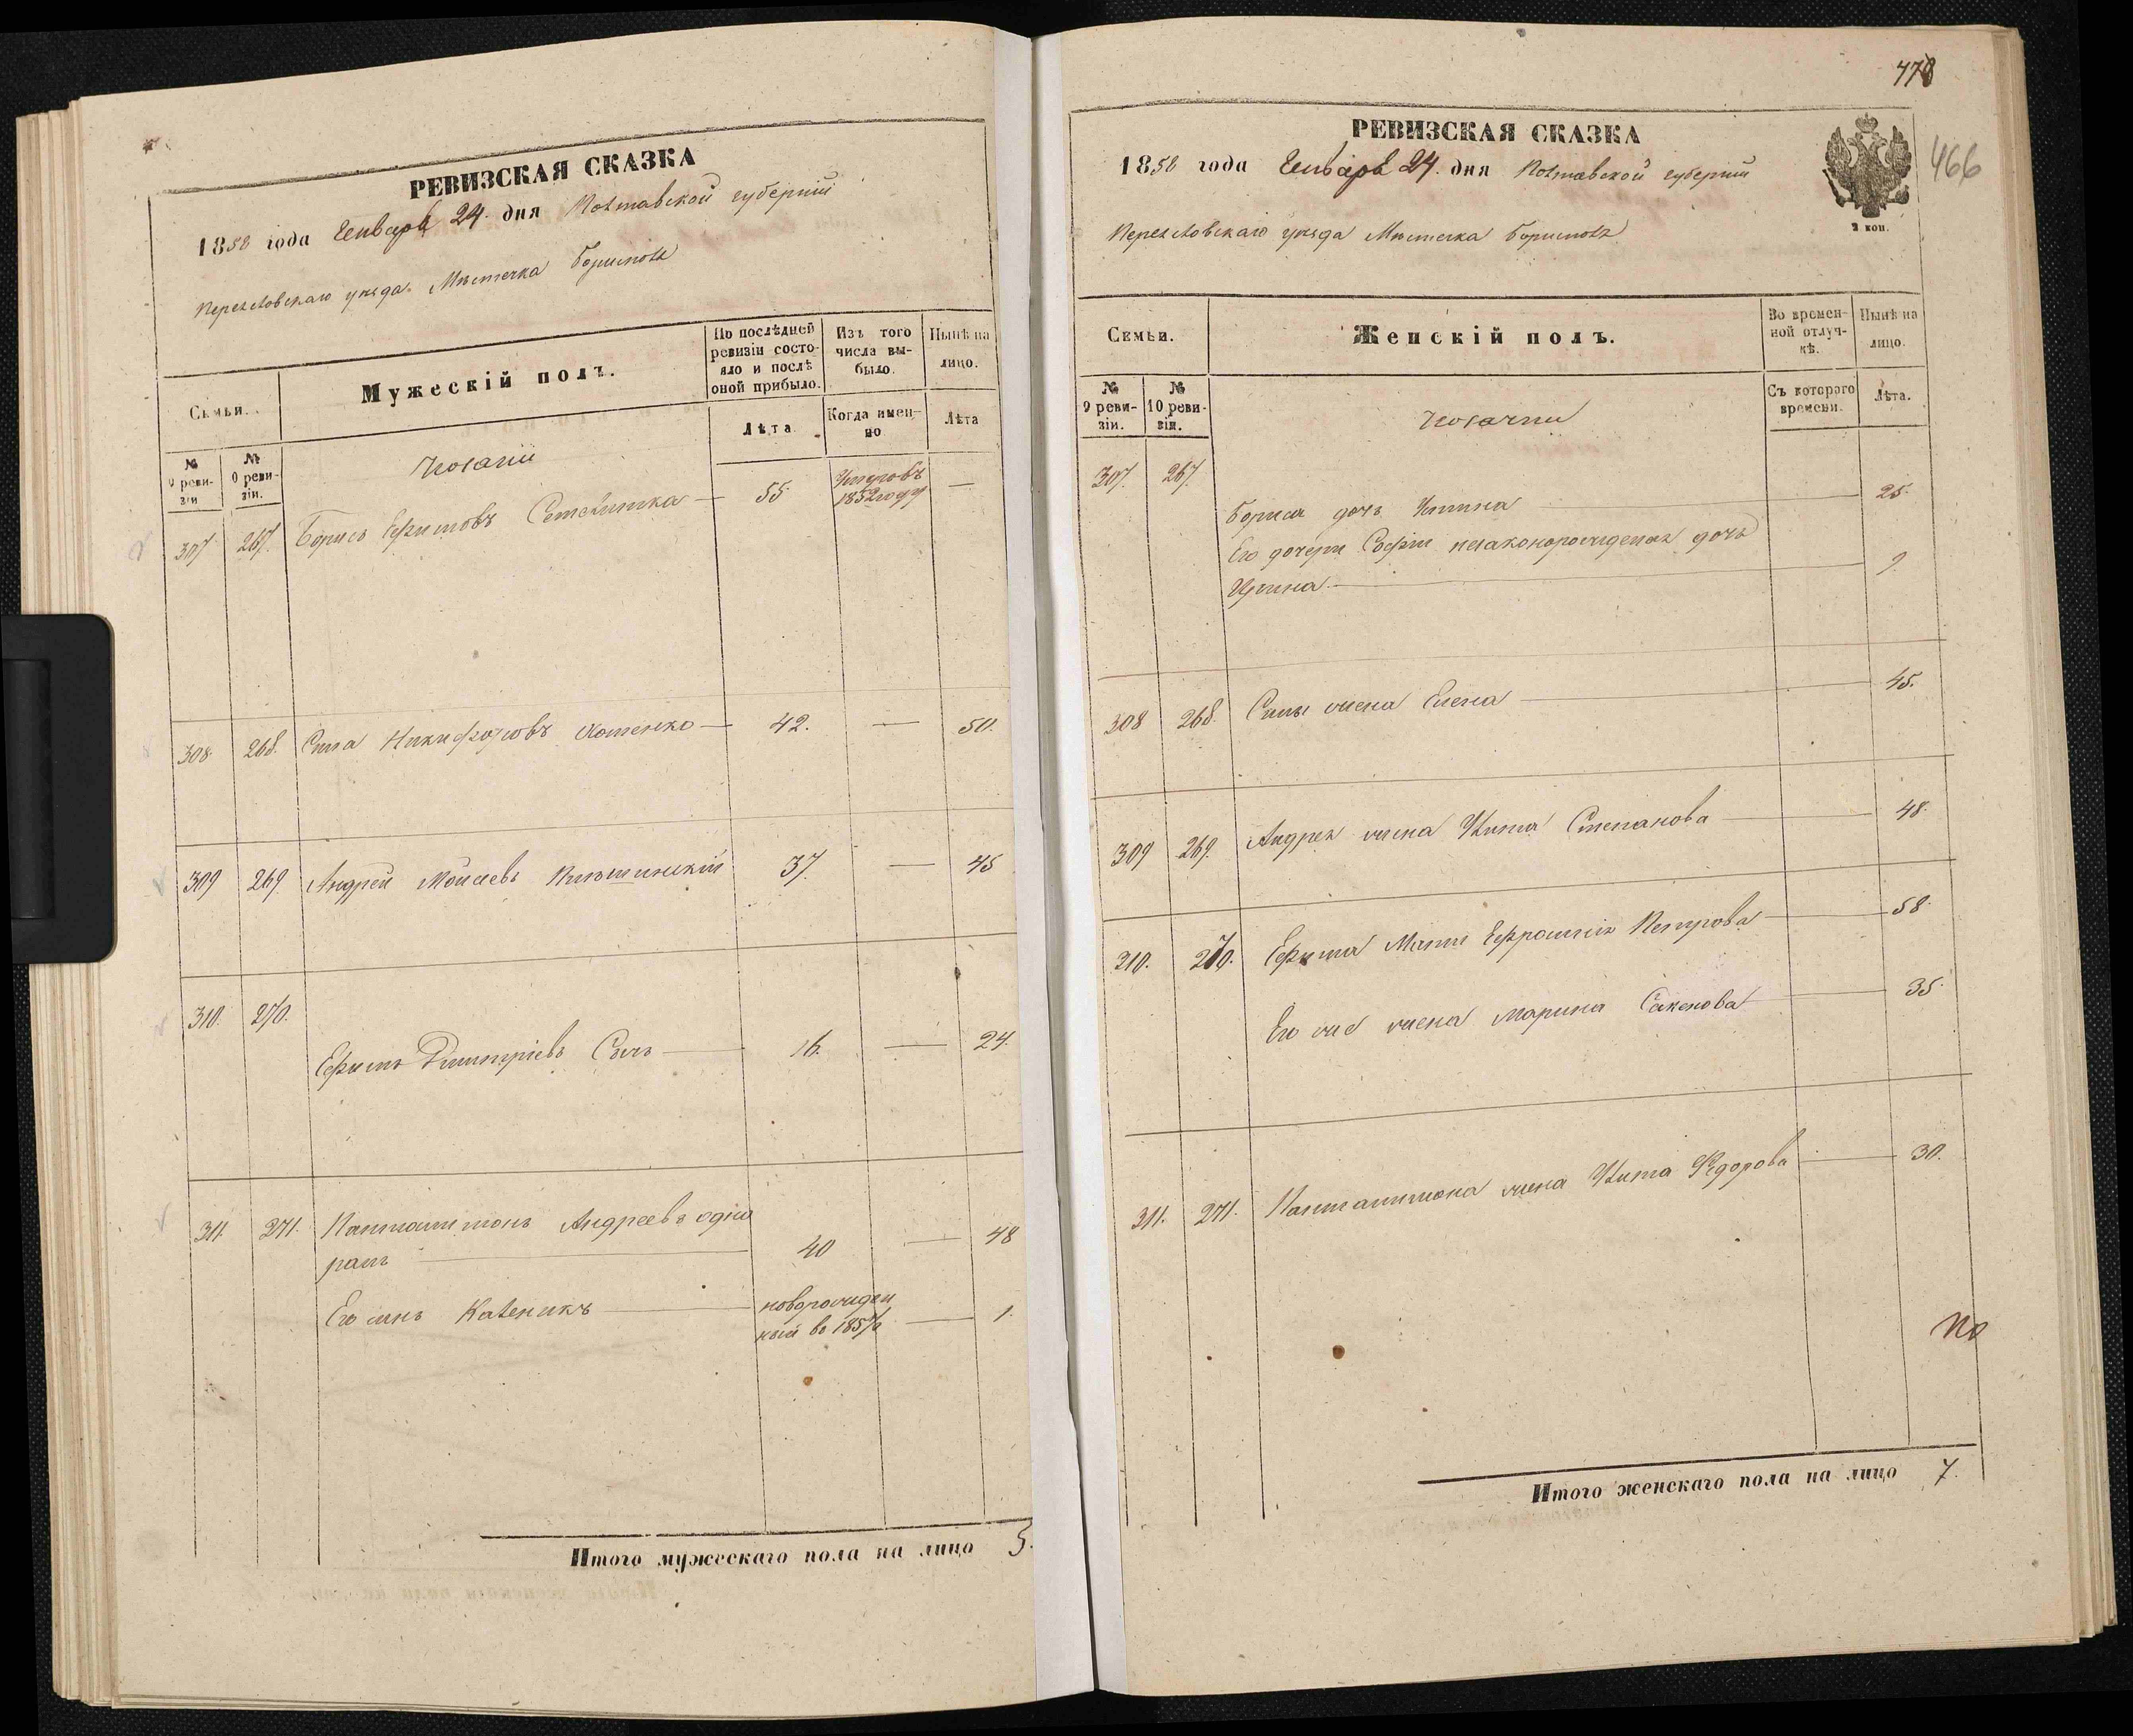 РЕВИЗСКАЯ СКАЗКА
1858 года Генваря 24 дня Полтавской губерніи
Переяславскаго уезда Мѣстечка Борисполя
Семьи.
Мужескій полъ.
По послѣдней ревизіи состояло и послѣ оной прибыло.
Изъ того числа выбыло.
Нынѣ на лицо.
№ 9 ревизіи
№ 10 ревизіи.
Козаки
Лѣта
Когда именно
Лѣта
307 267. Борисъ Ефимовъ 55 Умеръ въ 1852 году —
308 268. Сила Никифоровъ 42. — 50.
309 269. Андрей Моисеевъ 37. — 45
310. 270.
Ефимъ Дмитріевъ Сычъ 16. — 24.
311. 271. Пантелимонъ Андреевъ
40 — 48
Его сынъ Каленикъ новорожден
ный въ 1857 — 1.
Итого мужескаго пола на лицо 5.
478
466
РЕВИЗСКАЯ СКАЗКА
1858 года Генваря 24. дня Полтавской губерніи
2 коп.
Переяславскаго уезда Мѣстечка Борисполя
Семьи.
Женскій полъ.
Во временной отлучкѣ.
Нынѣ на лицо.
№ 9 ревизіи.
№ 10 ревизіи.
Козачки
Съ котораго времени.
Лѣта.
307. 267.
Бориса дочь 25.
Его дочери Софіи незаконорожденая дочь
Ирина 9
308 268. Силы жена Елена 45.
309 269. Андрея жена Степанова 48.
310. 270. Ефима Мать Ефросинія Петрова 58.
Его же жена Марина 35.
311. 271. Пантелимона жена Федорова 30.
по
Итого женскаго пола на лицо 7.